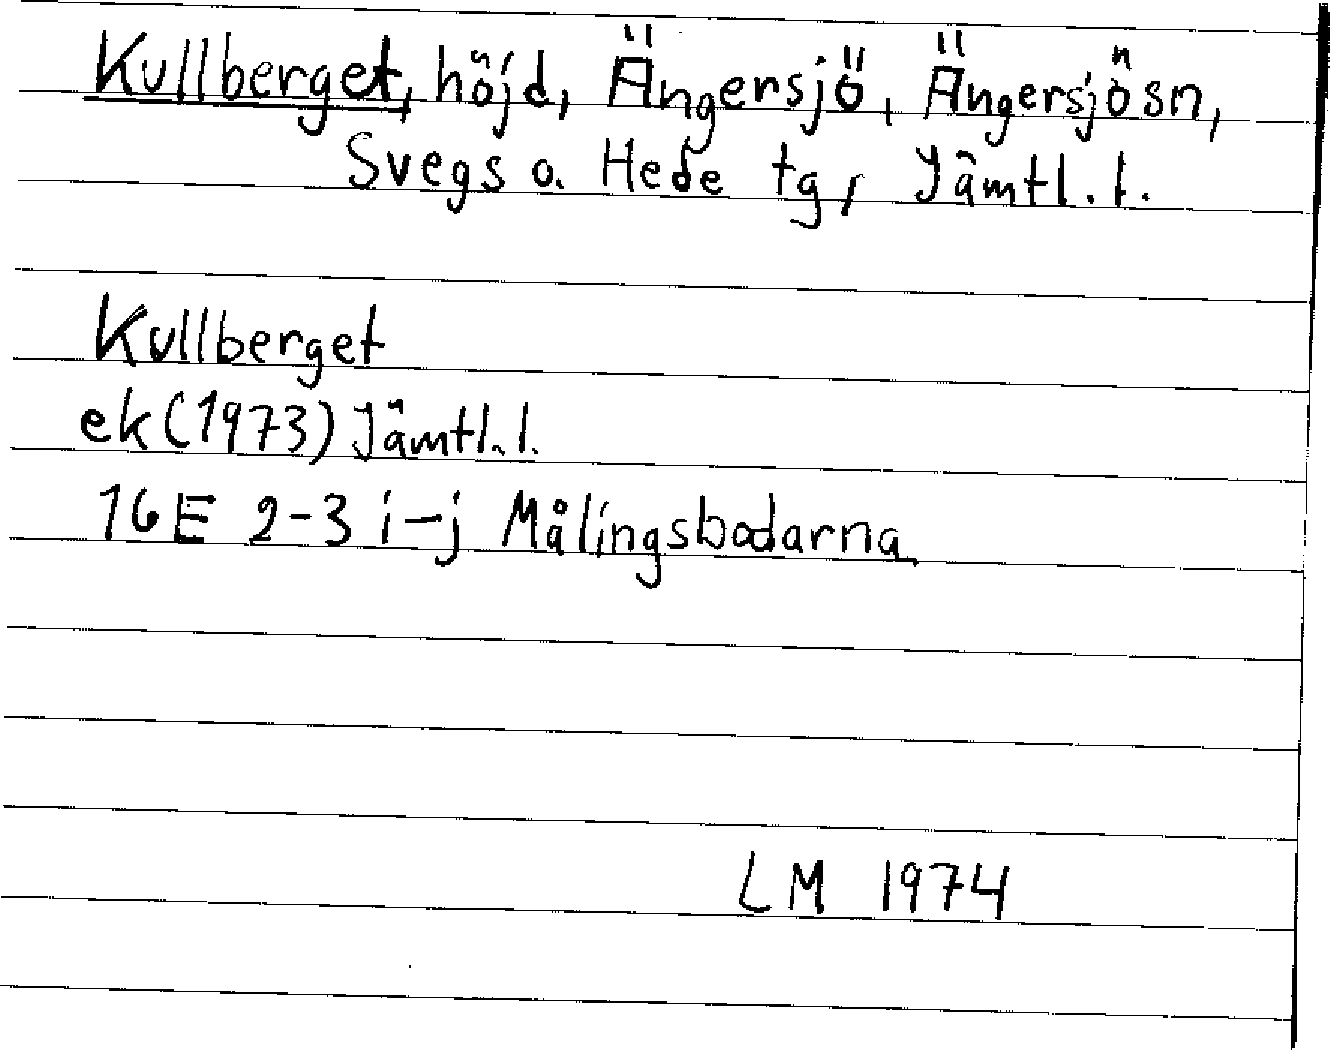 Kullberget, höjd, Ängersjö, Ängersjösn,
Svegs o. Hede tg, Jämtl.l.
Kullberget
ek (1973) Jämtl.l.
16E 2-3 i-j Målingsbodarna
LM 1974